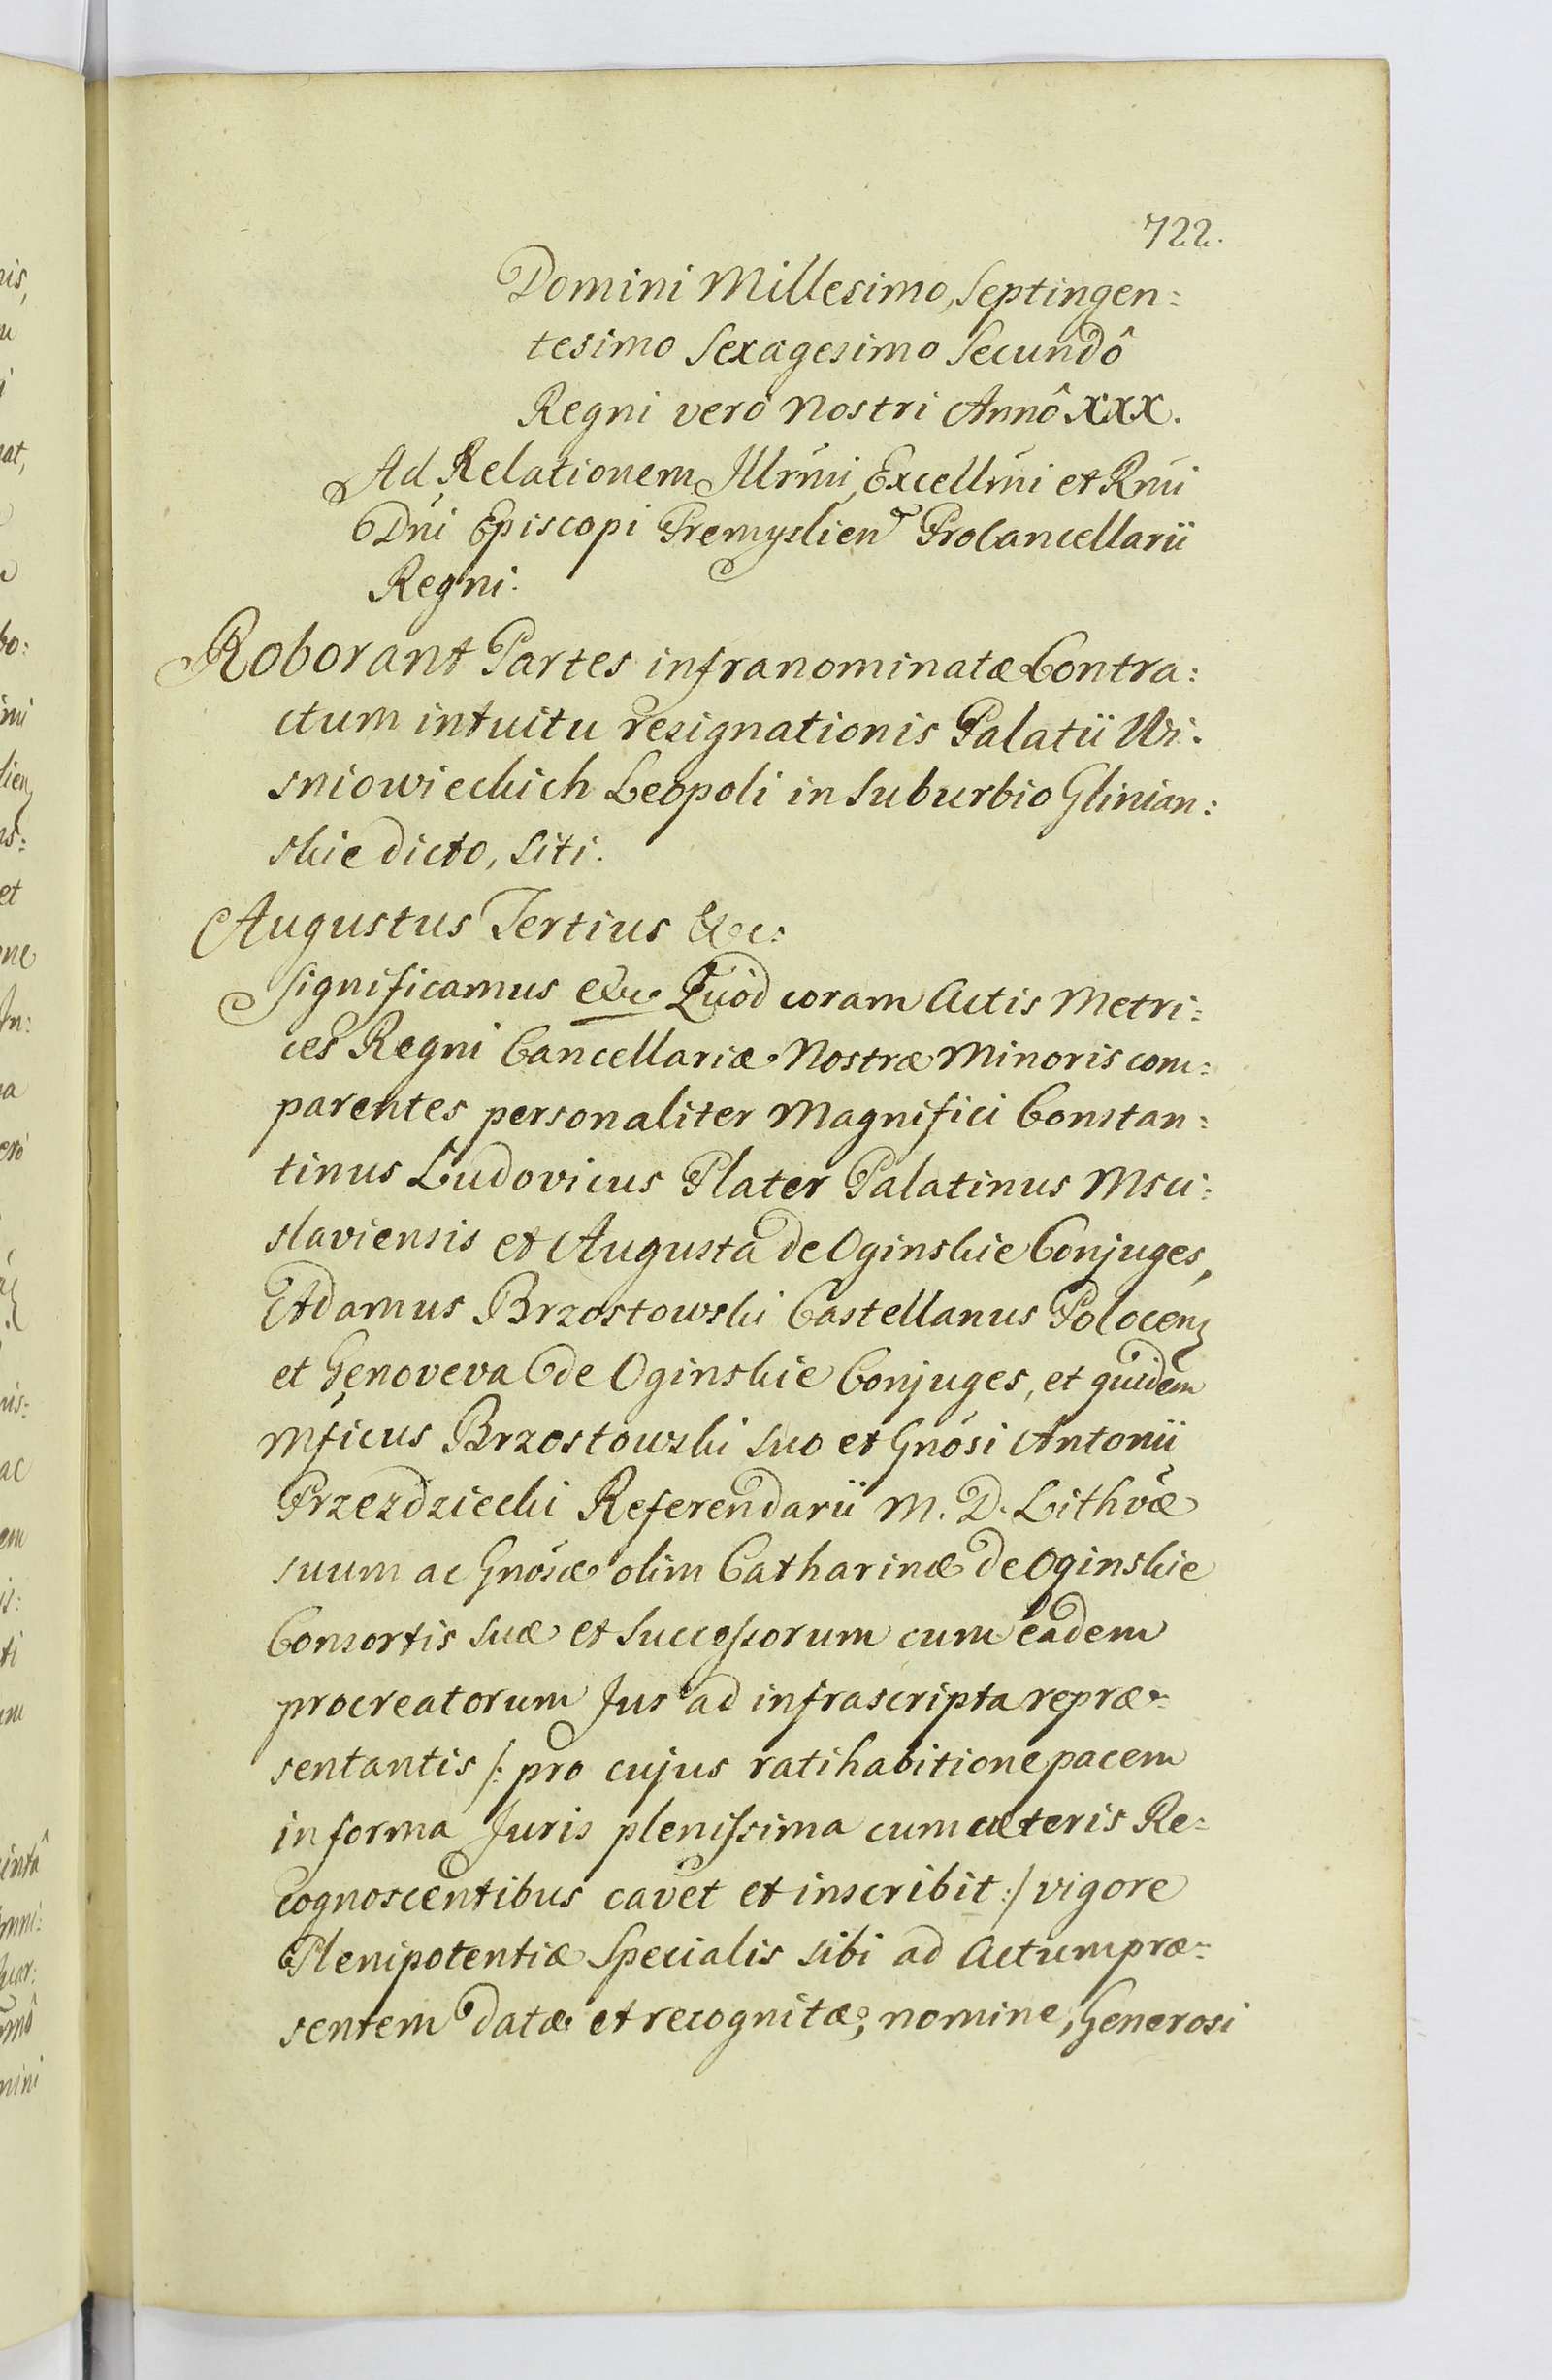 722.
Domini Millesimo, Septingen:
tesimo Sexagesimo Secundô
Regni verò Nostri Annô XXX.
Ad Relationem Illrmi, Excellmi et Rmi
Dni Episcopi Premyslien Procancellarii
Regni.
Roborant Partes infranominatæ Contra:
ctum intuitu resignationis Palatii Wi:
sniowieckich Leopoli in Suburbio Glinian:
skie dicto, siti.
Augustus Tertius &c:
Significamus etc. Quòd coram Actis Metri:
ces Regni Cancellariæ Nostræ Minoris com:
parentes personaliter Magnifici Constan:
tinus Ludovicus Plater Palatinus Msci:
slaviensis et Augusta de Oginskie Conjuges,
Adamus Brzostowski Castellanus Polocen
et Genoveva de Oginskie Conjuges, et quidem
Mficus Brzostowski suo et Gnosi Antonii
Przezdziecki Referendarii M. D. Lithvæ
suum ac Gnosæ olim Catharinæ de Oginskie
Consortis suæ et Successorum cum eadem
procreatorum Jus ad infrascripta repræ:
sentantis /: pro cujus ratihabitione pacem
in forma Juris plenissima cum cæteris Re:
cognoscentibus cavet et inscribit :/ vigore
Plenipotentiæ Specialis sibi ad Actum præ:
sentem datæ et recognitæ, nomine, Generosi